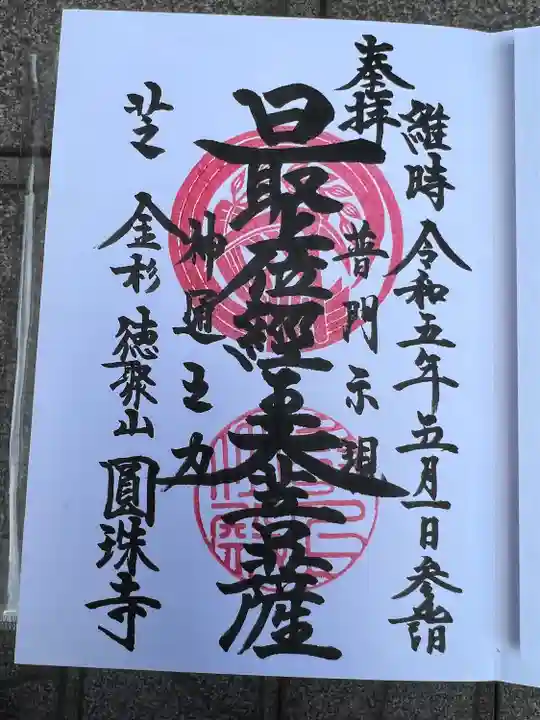 維時 令和五年五月一日 参詣
奉拝
普門示現
最上位經王大菩薩
神通之力
芝 金杉 徳聚山 圓珠寺